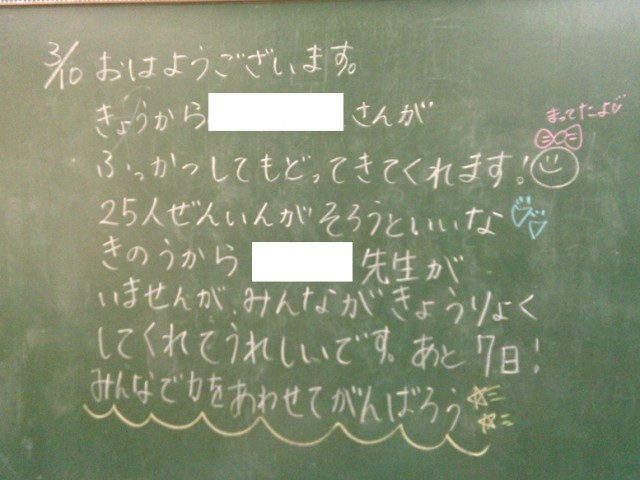 3/10 おはようございます。
きょうから さんが
まってたよ
ふっかつしてもどってきてくれます!
25人ぜんいんがそろうといいな
きのうから 先生が
いませんが、みんながきょうりょく
してくれてうれしいです。あと7日!
みんなで力をあわせてがんばろう